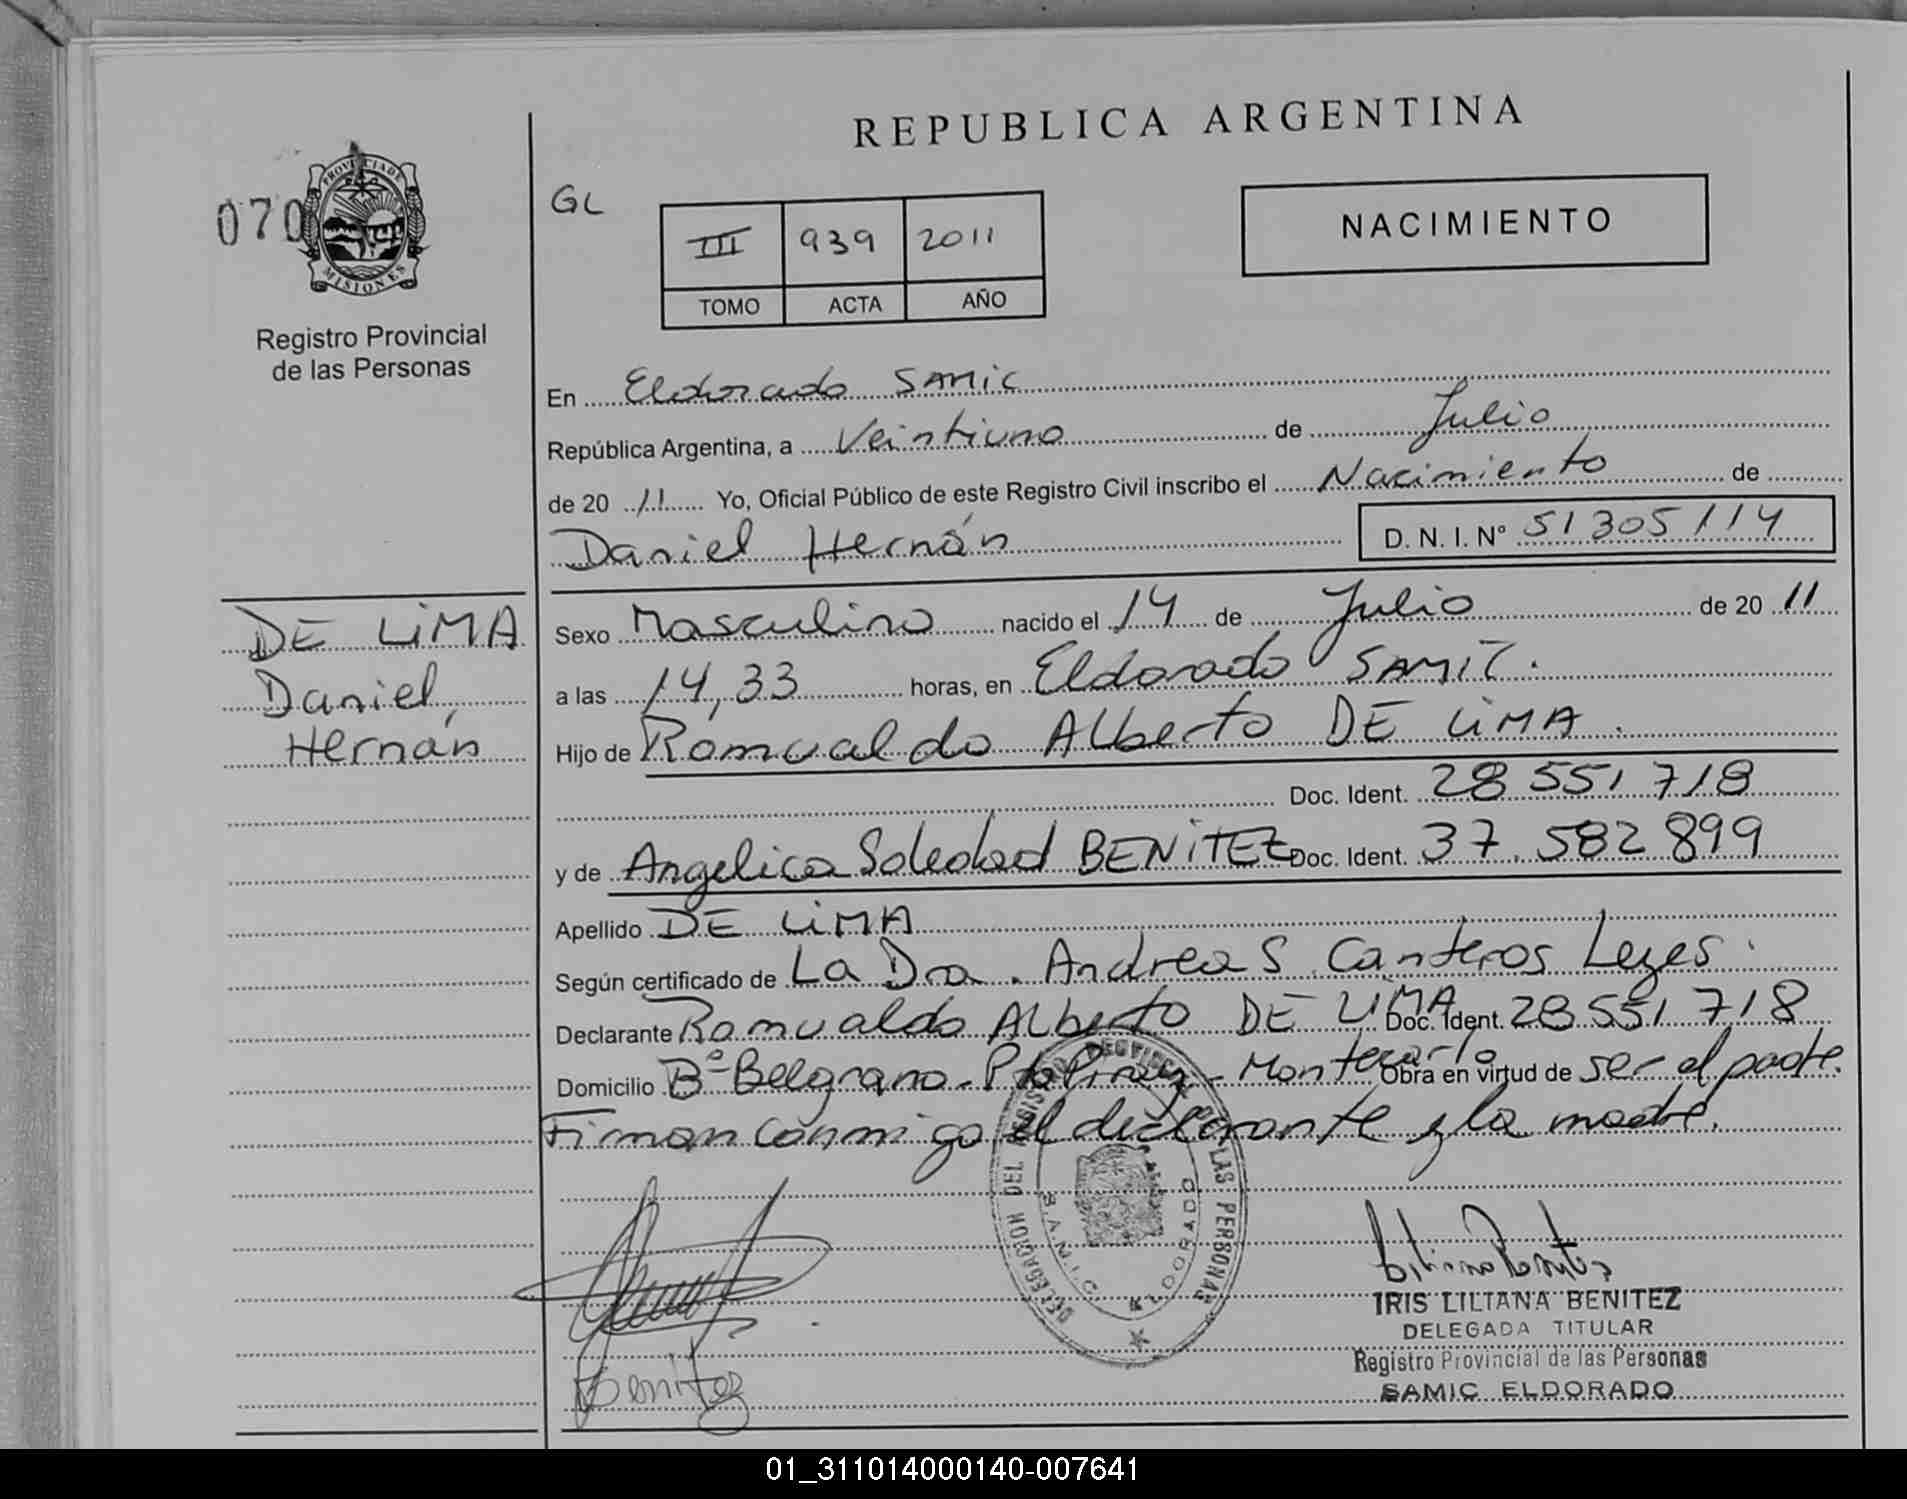 REPUBLICA ARGENTINA
070
PROVINCIA DE
MISIONES
Registro Provincial
de las Personas
GL
III 939 2011
TOMO ACTA AÑO
NACIMIENTO
En Eldorado SAMIC
República Argentina, a Veintiuno de Julio
de 20 11 Yo, Oficial Público de este Registro Civil inscribo el Nacimiento de
Daniel Hernán D. N. I. Nº 51305114
DE LiMA
Daniel,
Hernán
Sexo Masculino nacido el 14 de Julio de 20 11
a las 14,33 horas, en Eldorado SAMIC.
Hijo de Romualdo Alberto DE LiMA.
Doc. Ident. 28 551 718
y de Angelica Soledad BENiTEZ Doc. Ident. 37.582 899
Apellido DE LiMA
Según certificado de La Dra. Andrea S. Canteros Leyes.
Declarante Romualdo Alberto DE LIMA Doc. Ident. 28 551 718
Domicilio Bº Belgrano - Pto Piray - Montecarlo Obra en virtud de ser el padre.
Firman conmigo el declarante y la madre.
DELEGACION DEL REGISTRO PROVINCIAL DE LAS PERSONAS
S.A.M.I.C. ELDORADO
IRIS LILIANA BENITEZ
DELEGADA TITULAR
Registro Provincial de las Personas
SAMIC ELDORADO
Benitez
01_311014000140-007641